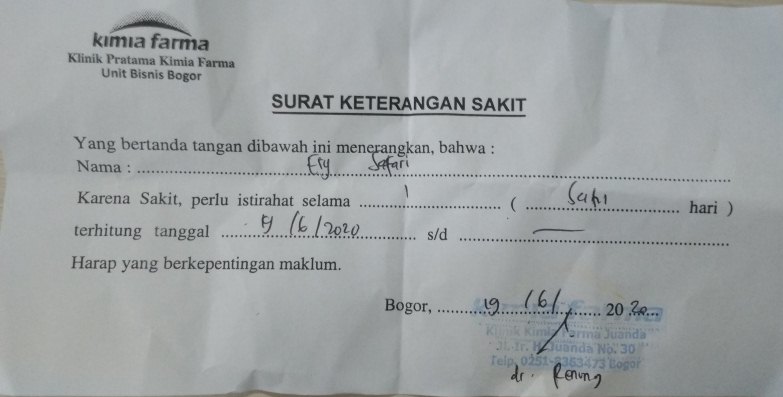 kimia farma
Klinik Pratama Kimia Farma
Unit Bisnis Bogor
SURAT KETERANGAN SAKIT
Yang bertanda tangan dibawah ini menerangkan, bahwa :
Nama : Safari
Karena Sakit, perlu istirahat selama 1 ( Satu hari )
terhitung tanggal 19/6/2020 s/d —
Harap yang berkepentingan maklum.
Bogor, 19/6/ 2020
Klinik Kimia Farma Juanda
Jl. Ir. H. Juanda No. 30
Telp. 0251-8363473 Bogor
dr. Renung